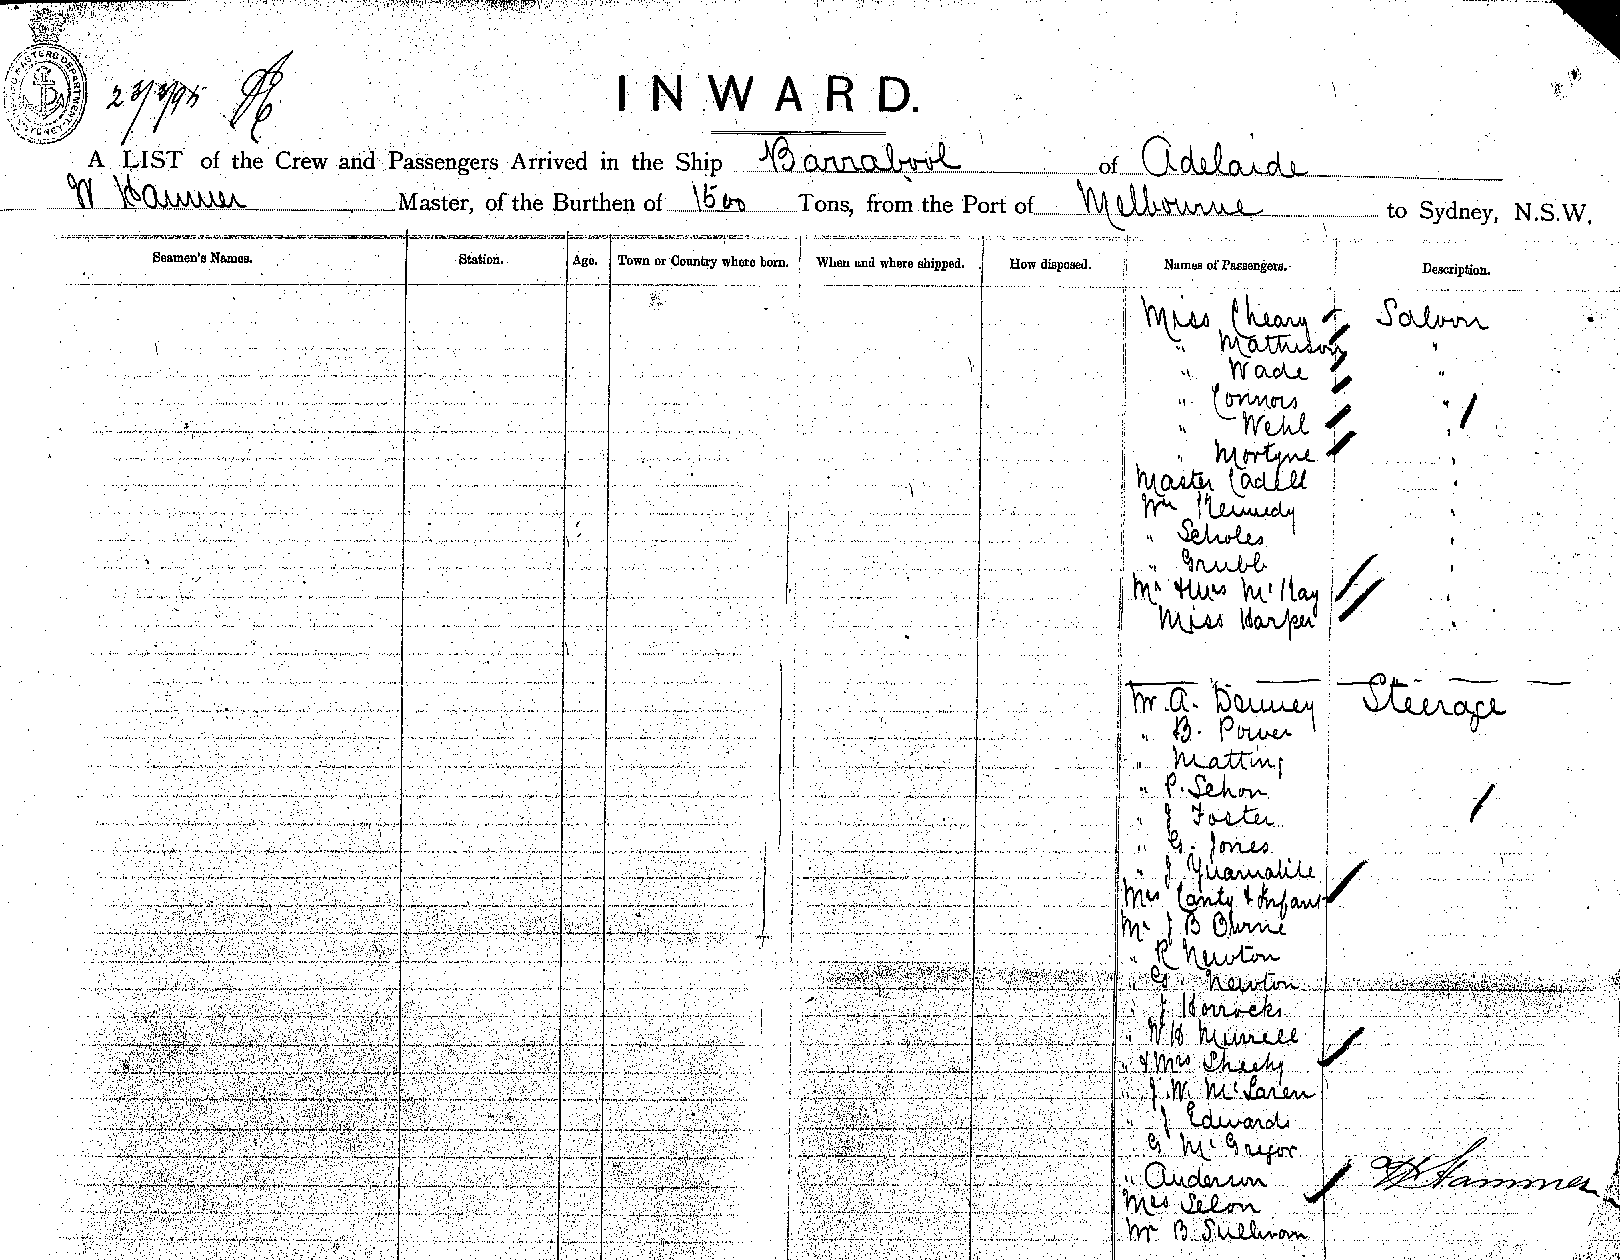 23/3/95
INWARD.
A LIST of the Crew and Passengers Arrived in the Ship Barrabool of Adelaide
W Hammer Master, of the Burthen of 1500 Tons, from the Port of Melbourne to Sydney, N.S.W.
Seamen's Names. Station. Age. Town or Country where born. When and where shipped. How disposed. Names of Passengers. Description.
Miss Cheary Saloon
" Mathison "
" Wade "
" Connors "
" Wehl "
" Mortyne "
Master Cadell "
Mr Kennedy "
" Scholes "
" Grubb "
Mr & Mrs McKay "
Miss Harper "
Mr A. Denney Steerage
" B. Power
" Matting
" P. Schon
" J Foster
" G. Jones
" J
Mrs Canty & Infant
Mr J B Byrne
" R Newton
" G. Newton
" J Horrocks
" W H Murrell
" & Mrs Sheehy
" J. W. McLaren
" J Edwards
" G McGregor
" Anderson W Hammer
Mrs Selon
Mr B Sullivan